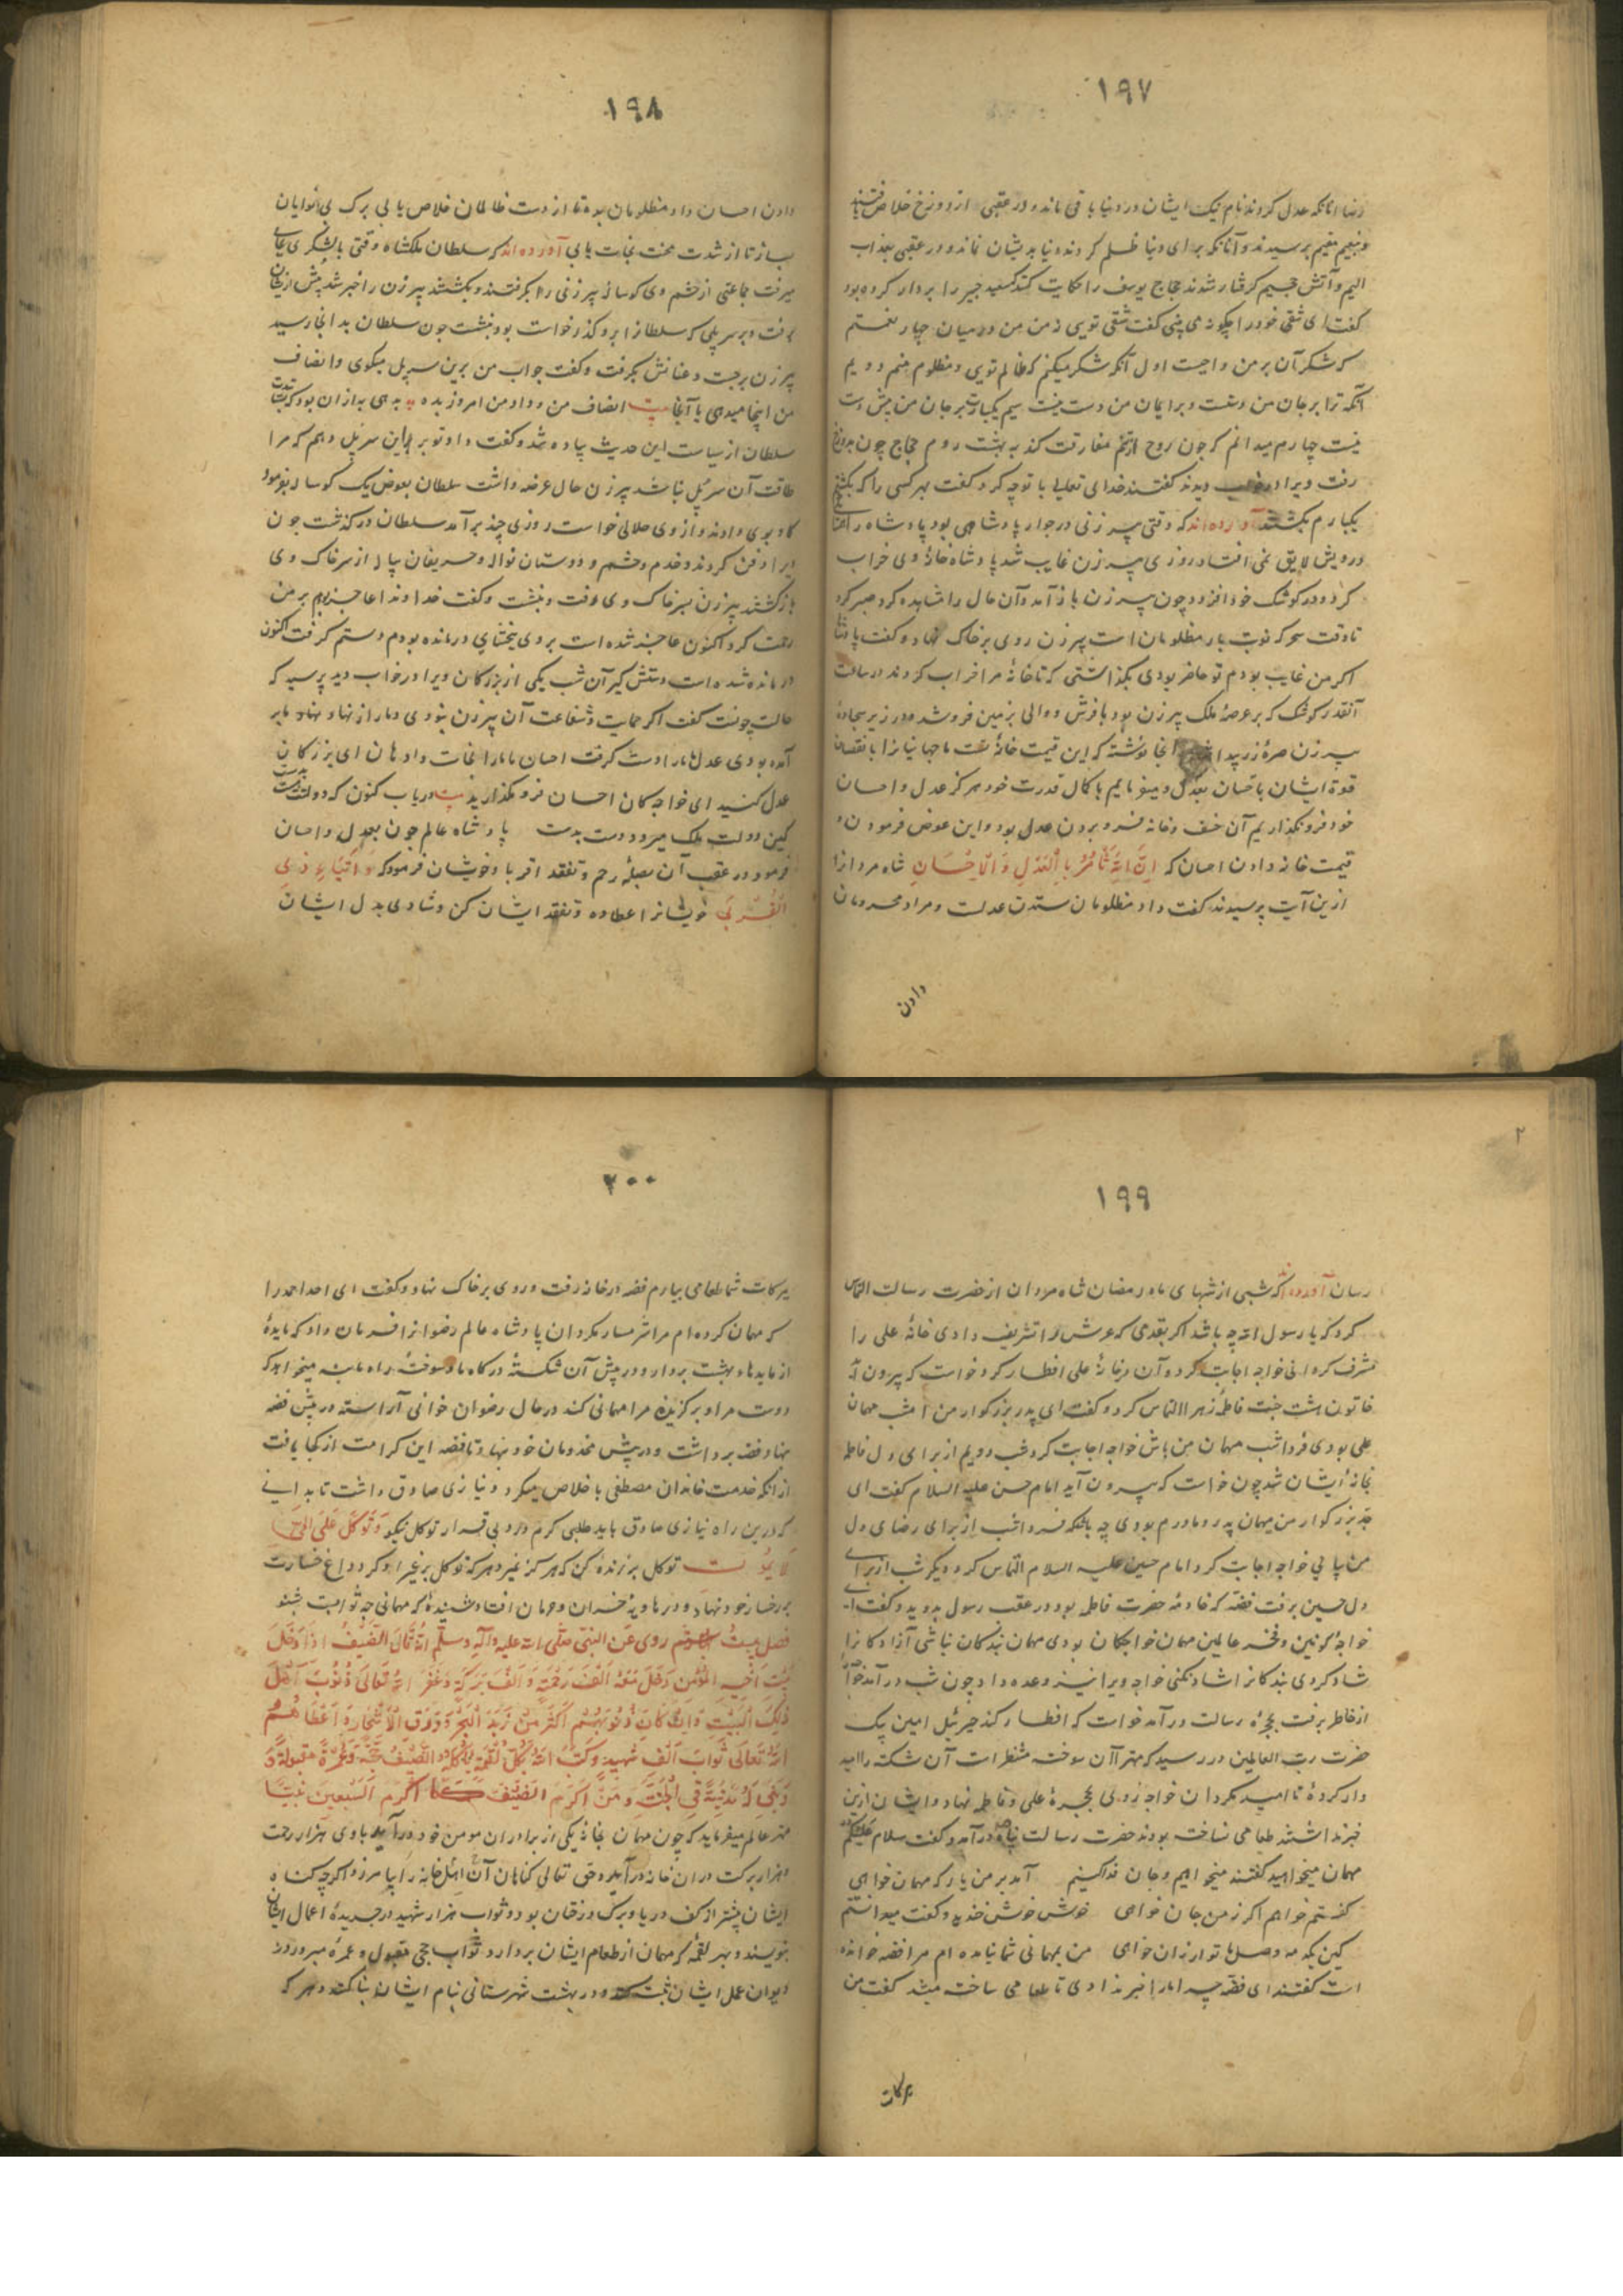 ۱۹۷
رضا آنانکه عدل کردند نام نیک ایشان در دنیا باقی ماند و در عقبی از دوزخ خلاص
و بنعیم مقیم رسیدند و آنانکه برای دنیا ظلم کردند دنیا بدیشان نماند و در عقبی بعذاب
الیم و آتش جحیم گرفتار شوند حجاج یوسف را حکایت کنند که سعید جبیر را بردار کرده بود
گفت ای شقی خود را چگونه می بینی گفت شقی تویی نه من من در میان چهار نعمتم
که شکر آن بر من واجبست اول آنکه شکر میکنم که ظالم تویی و مظلوم منم دویم
آنکه ترا بر جان من دستست و بر ایمان من دست نیست سیم یکبارت بر جان من بیش دست
نیست چهارم میدانم که چون روح از تنم مفارقت کند به بهشت روم حجاج چون بدوزخ
رفت ویرا در خواب دیدند گفتند خدای تعالی با تو چه کرد گفت بهر کسی را که بکشتم
یکبارم بکشتند آورده اند که وقتی پیرزنی در جوار پادشاهی بود پادشاه را
درویش لایق نمی افتاد روزی پیرزن غایب شد پادشاه خانهٔ وی خراب
کرد و در کوشک خود افزود چون پیرزن باز آمد و آن حال را مشاهده کرد صبر کرد
تا وقت سحر که نوبت بار مظلومان است پیرزن روی بر خاک نهاد و گفت پادشاها
اگر من غایب بودم تو حاضر بودی بگذاشتی که تا خانهٔ مرا خراب کردند در ساعت
آنقدر کوشک که بر عرصهٔ ملک پیرزن بود با فرش و والی بزمین فرو شد و در زیر سجادهٔ
پیرزن صرهٔ زر پیدا شد آنجا نوشته که این قیمت خانهٔ تست ما جهانیانرا با نقصان
قوة ایشان باحسان بعدل و میفرماییم با کمال قدرت خود هرگز عدل و احسان
خود فرو نگذاریم آن خسف و خانه فرو بردن عدل بود و این عوض فرمودن و
قیمت خانه دادن احسان که اِنَّ اللهَ یَأْمُرُ بِالْعَدْلِ وَالْاِحْسَانِ شاه مردانرا
از این آیت پرسیدند گفت داد مظلومان ستدن عدلست و مراد محرومان
دادن
۱۹۸
دادن احسان داد مظلومان بده تا از دست ظالمان خلاص یابی برک بی نوایان
بساز تا از شدت محنت نجات یابی آورده اند که سلطان ملکشاه وقتی با لشکری بجایی
میرفت جماعتی از حشم وی گوسالهٔ پیرزنی را بگرفتند و بکشتند پیرزن را خبر شد پیش از ایشان
برفت و بر سر پلی که سلطانرا برو گذر خواست بود بنشست چون سلطان بدانجا رسید
پیرزن برجست و عنانش بگرفت و گفت جواب من برین سر پل میگوی و انصاف
من اینجا میدهی یا آنجا بیت انصاف من و داد من امروز بده به دهی به از آن بود که
سلطان از سیاست این حدیث پیاده شد و گفت داد تو بر این سر پل دهم که مرا
طاقت آن سر پل نباشد پیرزن حال عرضه داشت سلطان بعوض یک گوساله بفرمود
گاو بوی دادند و از وی حلالی خواست روزی چند برآمد سلطان درگذشت چون
ویرا دفن کردند و خدم و حشم و دوستان نواله و حریفان پیاله از سر خاک وی
بازگشتند پیرزن بسر خاک وی رفت و بنشست و گفت خداوندا عاجز بودم بر من
رحمت کرد اکنون عاجز شده است بر وی ببخشای درمانده بودم دستم گرفت اکنون
درمانده شده است دستش گیر آن شب یکی از بزرگان ویرا در خواب دید پرسید که
حالت چونست گفت اگر حمایت و شفاعت آن پیرزن نبودی دمار از نهاد
آمده بودی عدل ما را دست گرفت احسان ما ما را نجات داد هان ای بزرگان
عدل کنید ای خواجگان احسان فرو مگذارید بیت دریاب کنون که دولت بدست
کین دولت ملک میرود دست بدست پادشاه عالم چون بعدل و احسان
فرمود در عقب آن بصلهٔ رحم و تفقد اقربا و خویشان فرمود که وَاِیْتَاءِ ذِی
الْقُرْبَی خویشانرا عطا ده و تفقد ایشان کن و شادی بدل ایشان
۲
۱۹۹
رسان آورده اند که شبی از شبهای ماه رمضان شاه مردان از حضرت رسالت التماس
کرد که یا رسول الله چه باشد اگر بقدمی که عرش را تشریف دادی خانهٔ علی را
مشرف گردانی خواجه اجابت کرد و آن در خانهٔ علی افطار کرد خواست که بیرون آید
خاتون بهشت جنت فاطمهٔ زهرا التماس کرد و گفت ای پدر بزرگوار من امشب مهمان
علی بودی فردا شب مهمان من باش خواجه اجابت کرد شب دویم از برای دل فاطمه
بخانهٔ ایشان شد چون خواست که بیرون آید امام حسن علیه السلام گفت ای
جد بزرگوار من مهمان پدر و مادرم بودی چه باشد که فردا شب از برای رضای دل
من بیایی خواجه اجابت کرد امام حسین علیه السلام التماس کرد و دیگر شب از برای
دل حسین برفت فضه که خادمهٔ حضرت فاطمه بود در عقب رسول بدوید و گفت ای
خواجهٔ کونین و فخر عالمین مهمان خواجگان بودی مهمان بندگان نباشی آزادگانرا
شاد کردی بندگانرا شاد نکنی خواجه ویرا نیز وعده داد چون شب درآمد
از خاطر برفت بحجرهٔ رسالت درآمد خواست که افطار کند جبرئیل امین پیک
حضرت رب العالمین در رسید که مهترا آن سوخته منتظر است آن شکسته را امید
وار کردهٔ نا امید مگردان خواجه روی بحجرهٔ علی و فاطمه نهاد و ایشان ازین
خبر نداشتند طعامی نساخته بودند حضرت رسالت پناه درآمد و گفت سلام علیکم
مهمان میخواهید گفتند میخواهیم و جان فدا کنیم آمد بر من یار که مهمان خواهی
گفتم خواهم اگر ز من جان خواهی خوش خوش خندید و گفت میدانستم
کین یکدمه وصل ما تو ارزان خواهی من بمهمانی شما نیامده ام مرا فضه خوانده
است گفتند ای فضه چرا ما را خبر ندادی تا طعامی ساخته میشد گفت من
ببرکات
۲۰۰
ببرکات شما طعامی بیارم فضه در خانه رفت و روی بر خاک نهاد و گفت ای احد احمد را
که مهمان کرده ام مرا شرمسار مگردان پادشاه عالم رضوانرا فرمان داد که مایدهٔ
از مایدهاء بهشت بردار و در پیش آن شکستهٔ درگاه ما و سوختهٔ راه ما بنه میخواهد که
دوست مرا و برگزیدهٔ مرا مهمانی کند در حال رضوان خوانی آراسته در پیش فضه
بنهاد فضه برداشت و در پیش مخدومان خود بنهاد تا فضه این کرامت از کجا یافت
از آنکه خدمت خاندان مصطفی باخلاص میکرد و نیازی صادق داشت تا بدانی
که درین راه نیازی صادق باید طلبی گرم و درو بی قرار توکل نیکو وَتَوَکَّلْ عَلَی الْحَیِّ
لَا یَمُوتُ توکل بر زندهٔ کن که هرگز نمیرد هر که توکل بر غیر او کرد داغ خسارت
بر رخسار خود نهاد و در هاویهٔ خسران و حرمان افتاد شنیدهٔ که مهمانی چه ثوابست شنو
فصل بیست روی عن النبی صلی الله علیه وآله وسلم انه قال الضیف اذا دخل
بیت اخیه المؤمن دخل معه الف رحمة و الف برکة و غفر الله تعالی ذنوب اهل
ذلک البیت و ان کان ذنوبهم اکثر من زبد البحر و ورق الاشجار و اعطاهم
الله تعالی ثواب الف شهید و کتب الله بکل لقمة یاکلها الضیف حجة و عمرة مقبولة و
و بنی له مدینة فی الجنة و من اکرم الضیف اکرم السبعین نبیا
مهتر عالم میفرماید که چون مهمان بخانهٔ یکی از برادران مومن خود درآید با وی هزار رحمت
و هزار برکت در ان خانه درآید و حق تعالی گناهان آن اهل خانه را بیامرزد اگر چه گناه
ایشان بیشتر از کف دریا و برک درختان بود و ثواب هزار شهید در جریدهٔ اعمال ایشان
بنویسند و بهر لقمهٔ که مهمان از طعام ایشان بردارد ثواب حجی مقبول و عمرهٔ مبرور در
دیوان عمل ایشان ثبت و در بهشت شهرستانی بنام ایشان بنا کند و هر که